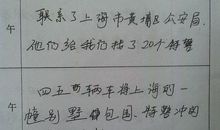 联系了上海市黄埔区公安局.
午
他们给我们找了20个特警
四五西辆车将上海的一
午
幢别墅 包围. 特警冲的